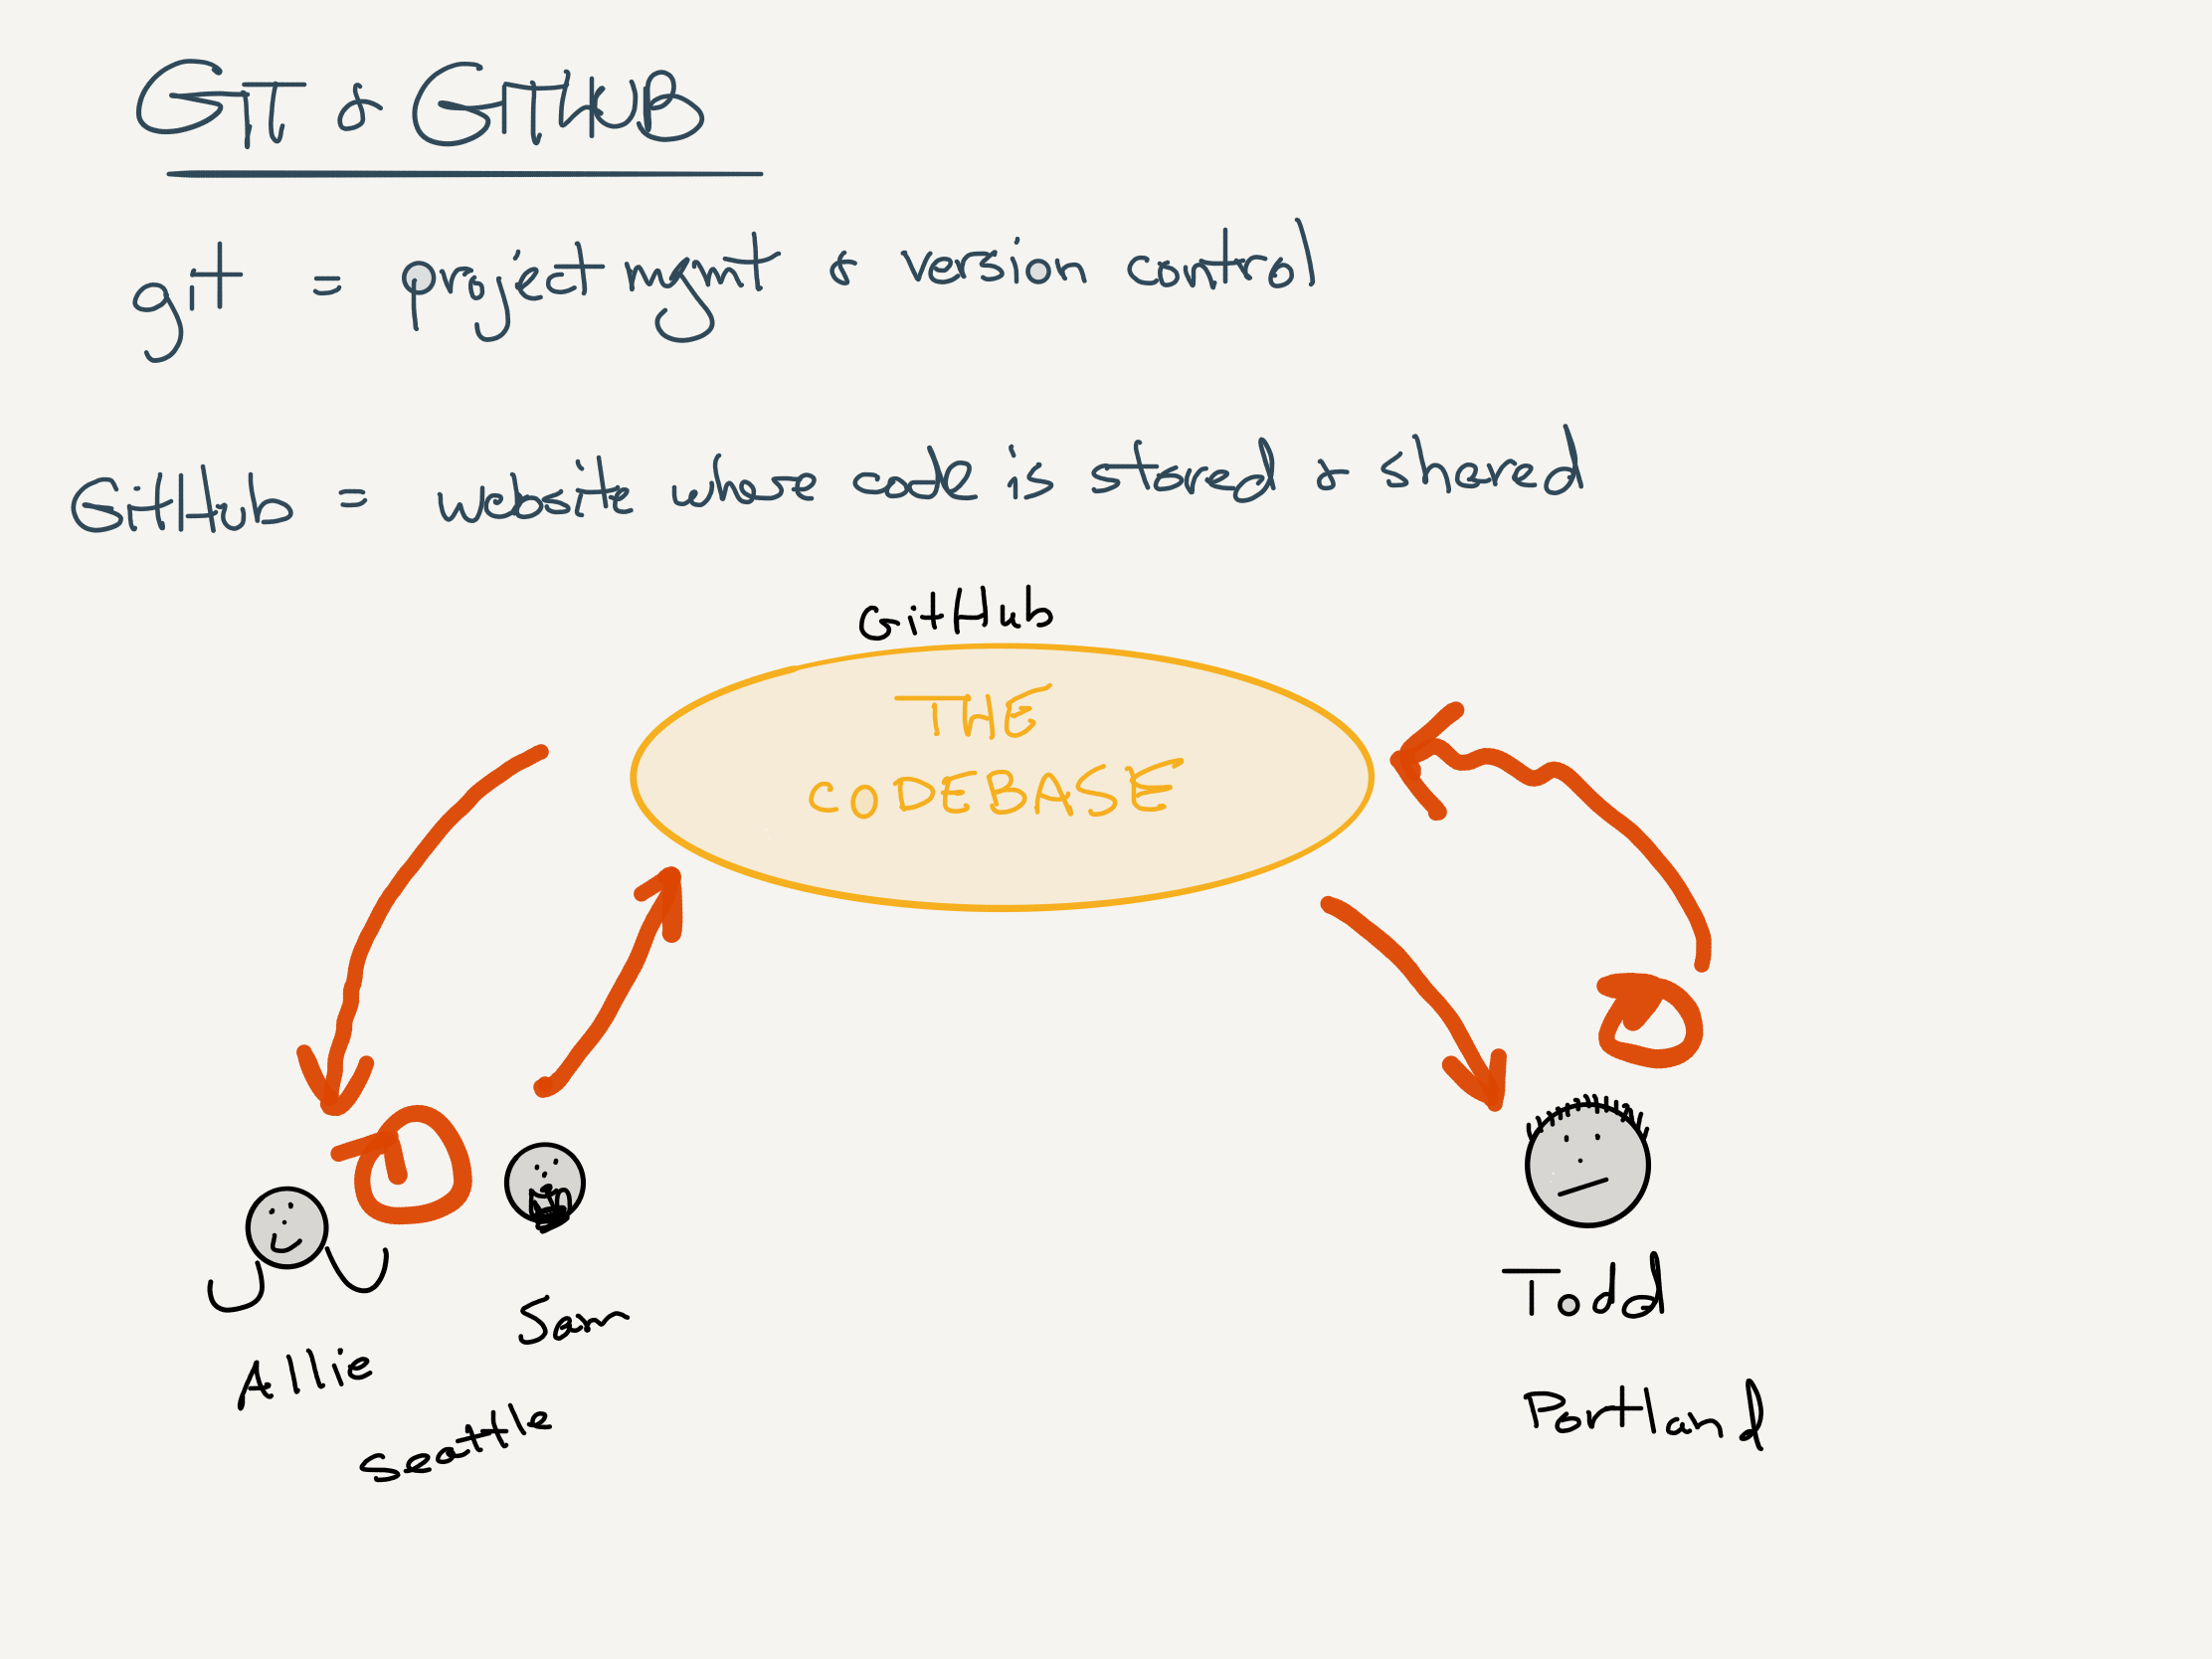 GIT & GITHUB
git = project mgmt & version control
GitHub = website whose code is stored & shared
GitHub
THE
CODEBASE
Sam
Allie
Seattle
Todd
Portland